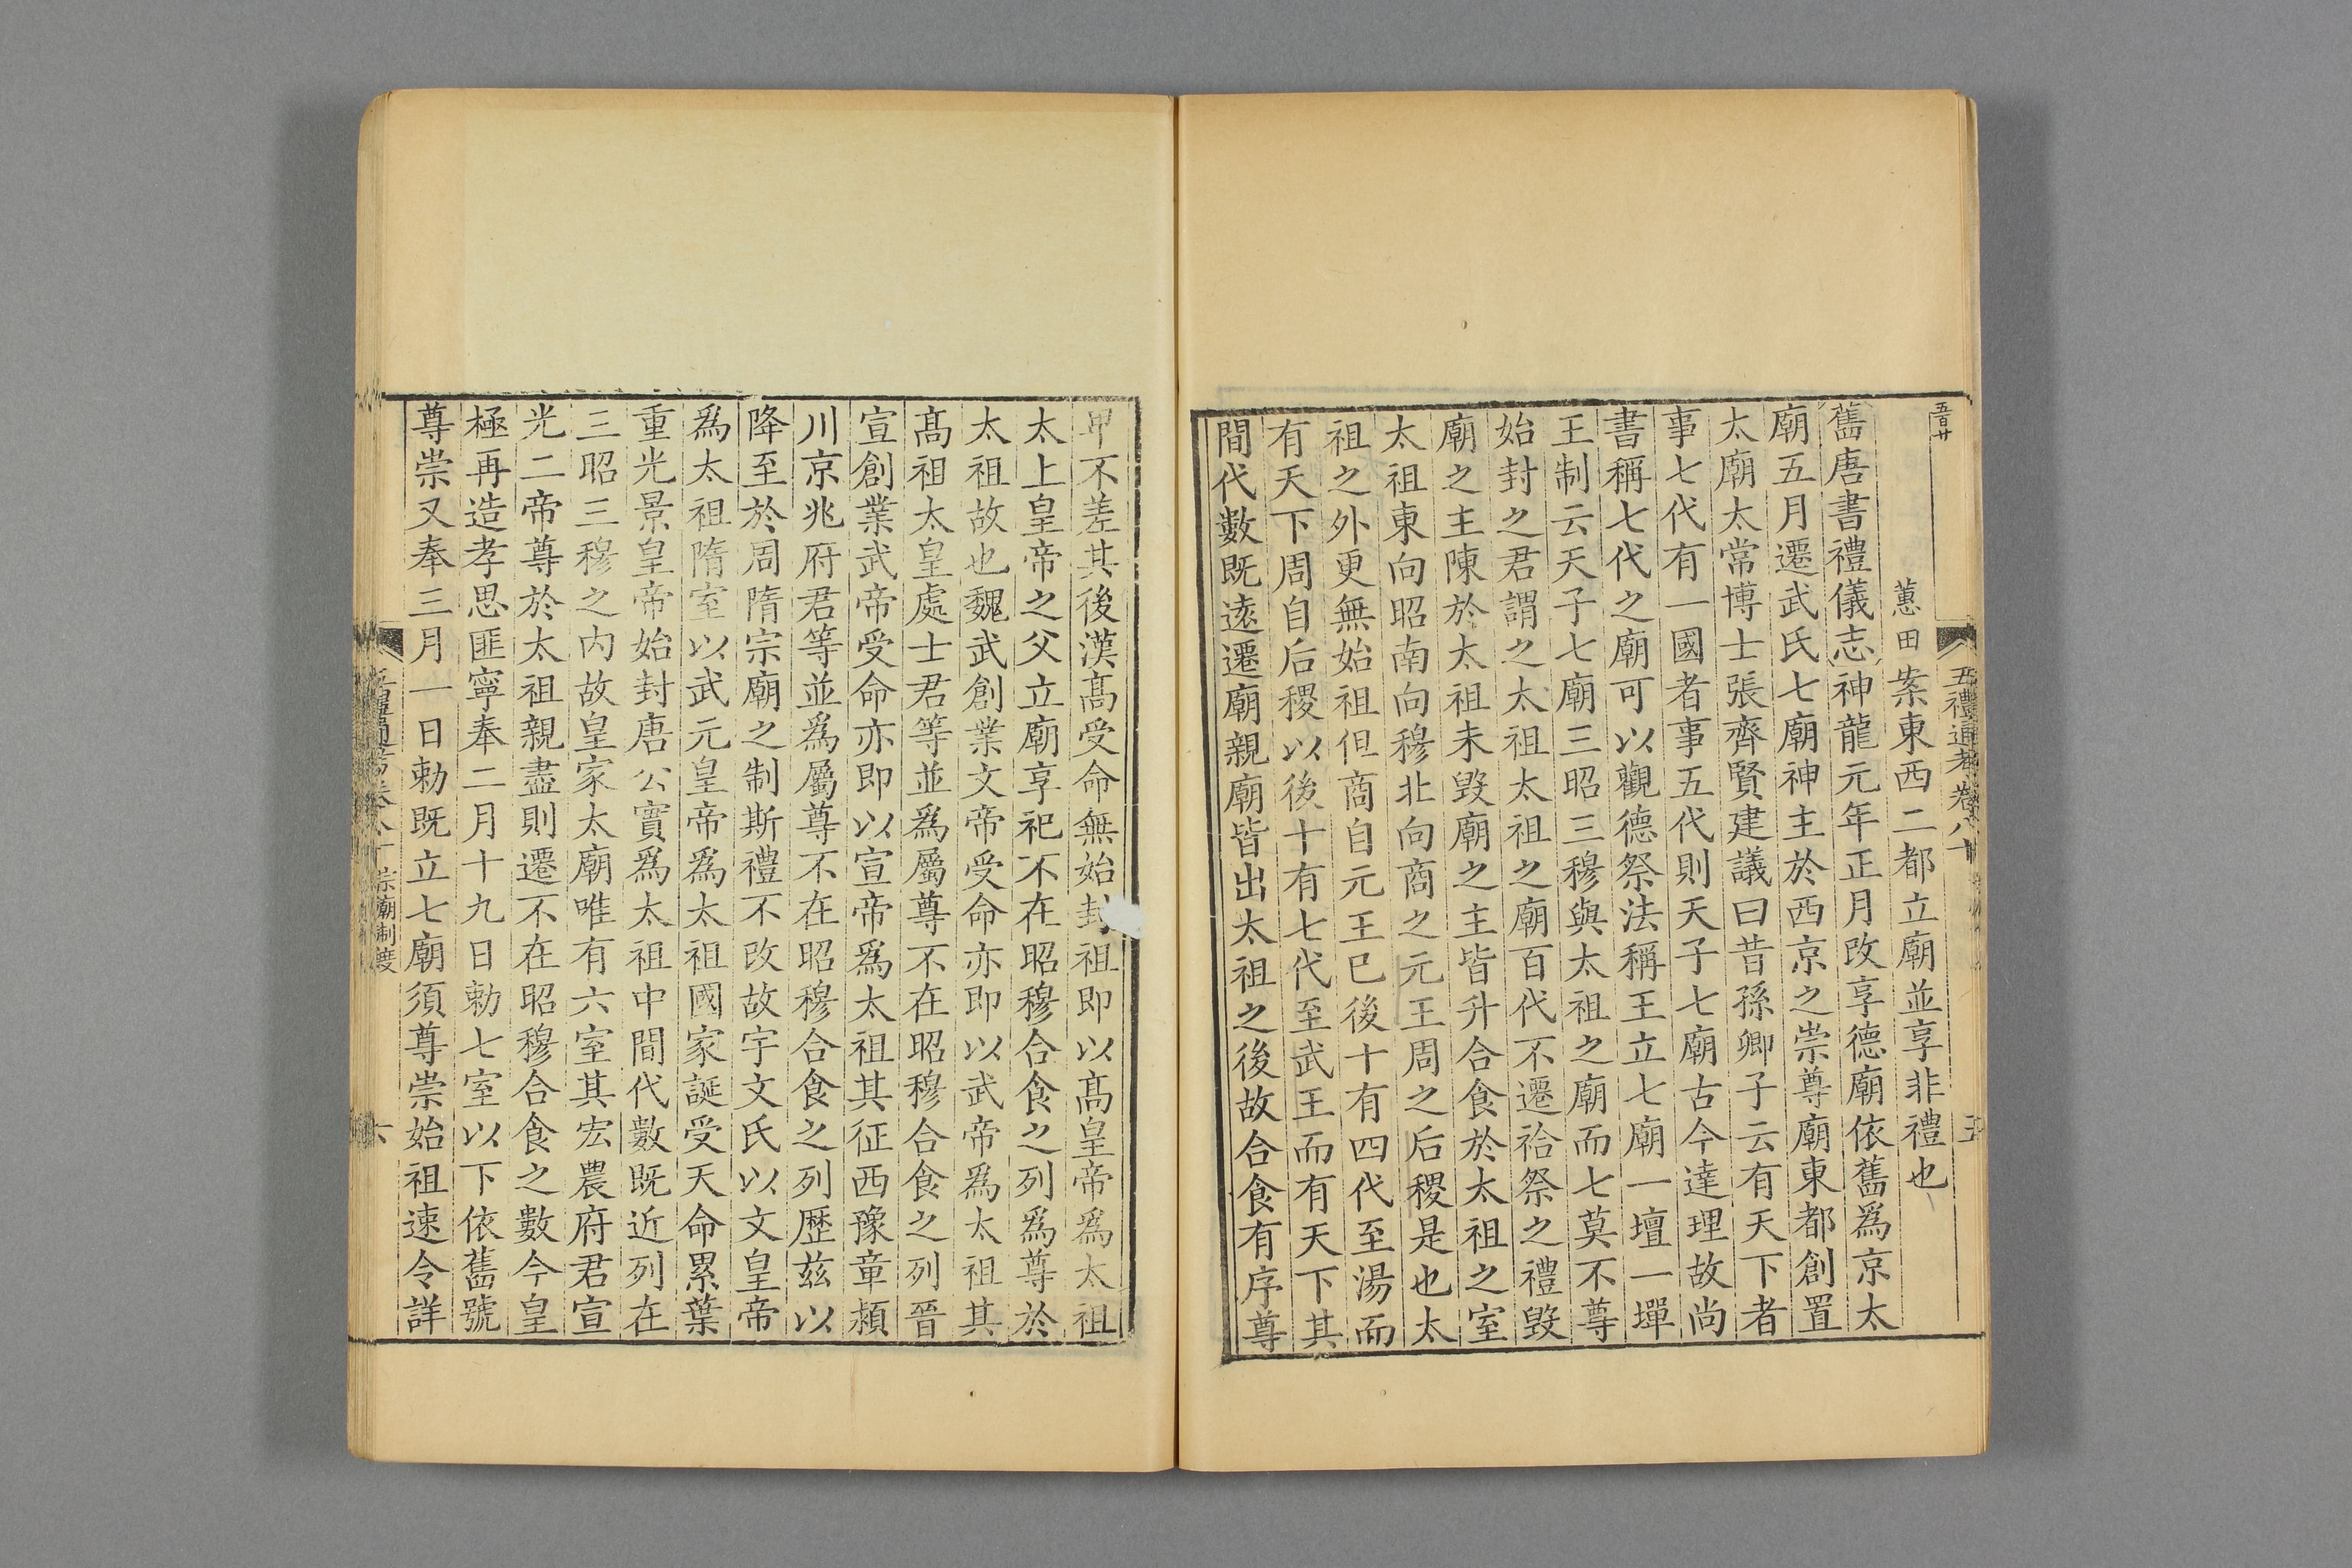 五禮通考卷八十
五
蕙田案東西二都立廟並享非禮也
舊唐書禮儀志神龍元年正月改享德廟依舊爲京太
廟五月遷武氏七廟神主於西京之崇尊廟東都創置
太廟太常博士張齊賢建議曰昔孫卿子云有天下者
事七代有一國者事五代則天子七廟古今達理故尚
書稱七代之廟可以觀德祭法稱王立七廟一壇一墠
王制云天子七廟三昭三穆與太祖之廟而七莫不尊
始封之君謂之太祖太祖之廟百代不遷祫祭之禮毀
廟之主陳於太祖未毀廟之主皆升合食於太祖之室
太祖東向昭南向穆北向商之元王周之后稷是也太
祖之外更無始祖但商自元王已後十有四代至湯而
有天下周自后稷以後十有七代至武王而有天下其
間代數既遠遷廟親廟皆出太祖之後故合食有序尊
卑不差其後漢髙受命無始封祖即以髙皇帝爲太祖
太上皇帝之父立廟享祀不在昭穆合食之列爲尊於
太祖故也魏武創業文帝受命亦即以武帝爲太祖其
髙祖太皇處士君等並爲屬尊不在昭穆合食之列晉
宣創業武帝受命亦即以宣帝爲太祖其征西豫章潁
川京兆府君等並爲屬尊不在昭穆合食之列歷茲以
降至於周隋宗廟之制斯禮不改故宇文氏以文皇帝
爲太祖隋室以武元皇帝爲太祖國家誕受天命累葉
重光景皇帝始封唐公實爲太祖中間代數既近列在
三昭三穆之內故皇家太廟唯有六室其宏農府君宣
光二帝尊於太祖親盡則遷不在昭穆合食之數今皇
極再造孝思匪寧奉二月十九日勅七室以下依舊號
尊崇又奉三月一日勅既立七廟須尊崇始祖速令詳
五禮通考卷八十 宗廟制度
六